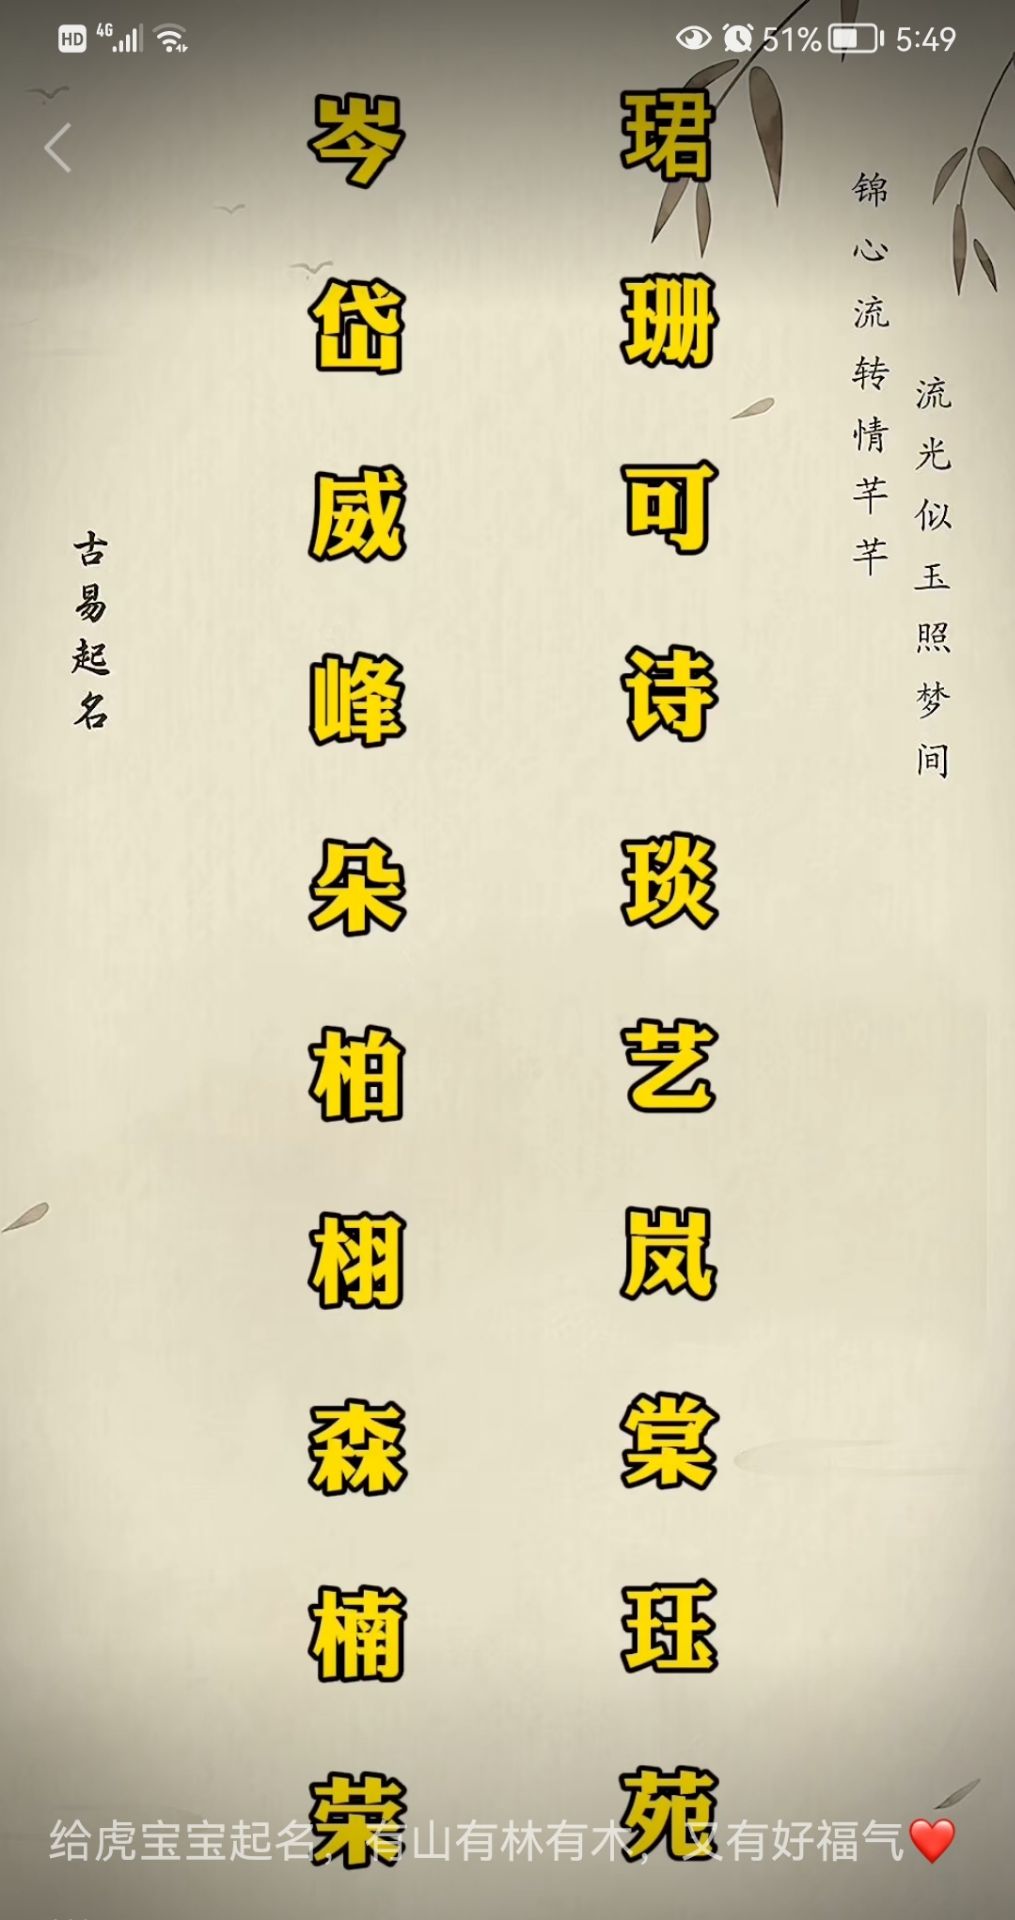 HD 4G 51% 5:49
流光似玉照梦间
锦心流转情芊芊
珺珊可诗琰艺岚棠珏苑
岑岱威峰朵柏栩森楠荣
古易起名
给虎宝宝起名，有山有林有木，又有好福气❤️